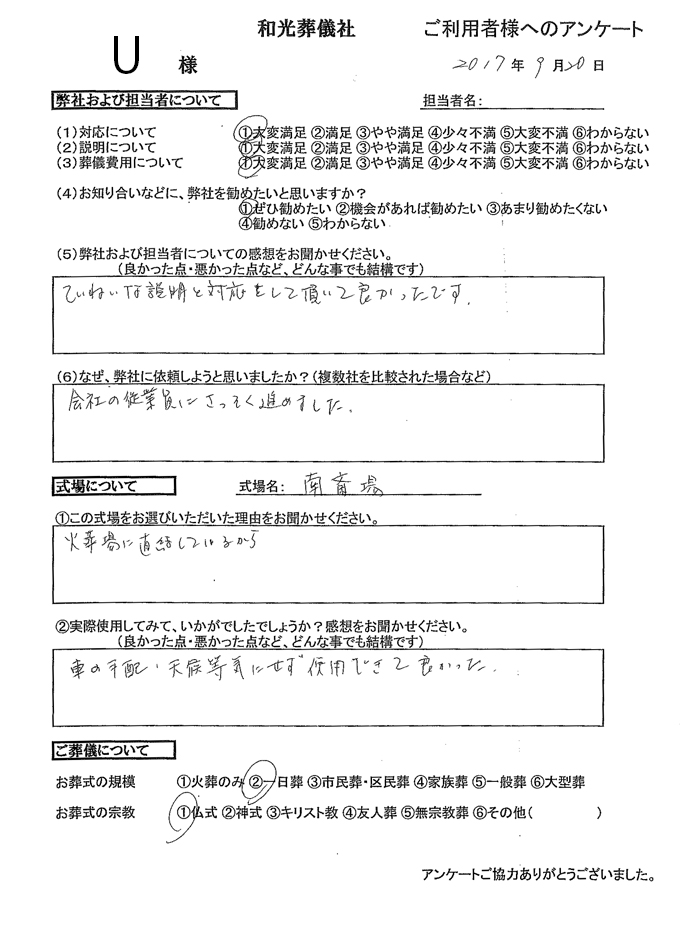 和光葬儀社 ご利用者様へのアンケート
U 様
2017年9月20日
弊社および担当者について 担当者名:
(1)対応について ①大変満足 ②満足 ③やや満足 ④少々不満 ⑤大変不満 ⑥わからない
(2)説明について ①大変満足 ②満足 ③やや満足 ④少々不満 ⑤大変不満 ⑥わからない
(3)葬儀費用について ①大変満足 ②満足 ③やや満足 ④少々不満 ⑤大変不満 ⑥わからない
(4)お知り合いなどに、弊社を勧めたいと思いますか?
①ぜひ勧めたい ②機会があれば勧めたい ③あまり勧めたくない
④勧めない ⑤わからない
(5)弊社および担当者についての感想をお聞かせください。
(良かった点・悪かった点など、どんな事でも結構です)
ていねいな説明と対応をして頂いて良かったです.
(6)なぜ、弊社に依頼しようと思いましたか?(複数社を比較された場合など)
会社の従業員に進めました.
式場について 式場名: 南斎場
①この式場をお選びいただいた理由をお聞かせください。
火葬場に直結しているから
②実際使用してみて、いかがでしたでしょうか?感想をお聞かせください。
(良かった点・悪かった点など、どんな事でも結構です)
車の手配、天候等気にせず使用できて良かった.
ご葬儀について
お葬式の規模 ①火葬のみ ②一日葬 ③市民葬・区民葬 ④家族葬 ⑤一般葬 ⑥大型葬
お葬式の宗教 ①仏式 ②神式 ③キリスト教 ④友人葬 ⑤無宗教葬 ⑥その他( )
アンケートご協力ありがとうございました。